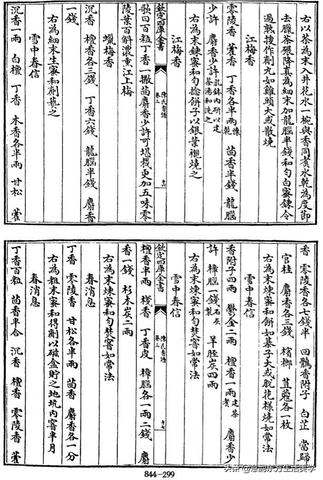 右以茶為末入井花水一椀與香同煮水乾為度節
去臘茶碾降真為細末加龍腦半錢和勻白蜜鍊令
過熟搜作劑丸如雞頭大或散燒
江梅香
零陵香 藿香 丁香各半兩 茴香半錢 龍腦
少許 麝香少許
右為末煉蜜和勻捻餅子以銀葉襯燒之
江梅香
欽定四庫全書
陳氏香譜
卷三
歌曰百粒丁香一撮茴麝香少許可堪裁更加五味零
陵葉百斛濃熏江上梅
蠟梅香
沉香 檀香各三錢 丁香六錢 龍腦半錢 麝香
一錢
右為細末生蜜和劑爇之
雪中春信
沉香一兩 白檀 丁香 木香各半兩 甘松 藿
香 零陵香各七錢半 回鶻香附子 白芷 當歸
官桂 麝香各三錢 檳榔 荳蔻各一枚
右為末煉蜜和餅如碁子大或脱花様燒如常法
雪中春信
香附子四兩 鬱金二兩 檀香一兩建茶煮 麝香少
許 樟腦一錢石灰製 羊脛炭四兩
右為末煉蜜和勻焚窨如常法
雪中春信
欽定四庫全書
陳氏香譜
卷三
檀香半兩 棧香 丁香皮 樟腦各一兩二錢 麝
香一錢 杉木炭二兩
右為末煉蜜和勻焚窨如常法
春消息
丁香 零陵香 甘松各半兩 茴香 麝香各一分
右為粗末蜜和得劑以磁盒貯之地坑内窨半月
春消息
丁香百粒 茴香半合 沉香 檀香 零陵香 藿香
844—299